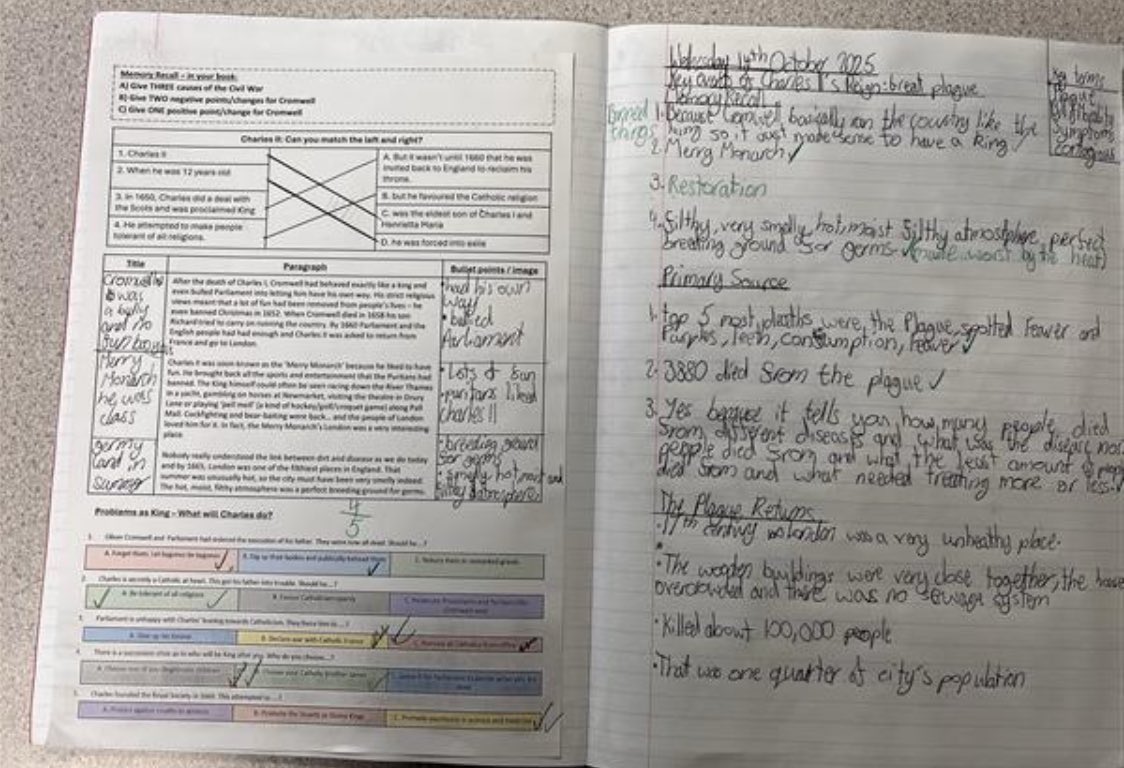 Memory Recall – in your book:
A) Give THREE causes of the Civil War
B) Give TWO negative points/changes for Cromwell
C) Give ONE positive point/change for Cromwell
Charles II: Can you match the left and right?
1. Charles II
2. When he was 12 years old
3. In 1650, Charles did a deal with
the Scots and was proclaimed King
4. He attempted to make people
tolerant of all religions.
A. But it wasn't until 1660 that he was
invited back to England to reclaim his
throne.
B. but he favoured the Catholic religion
C. was the eldest son of Charles I and
Henrietta Maria
D. he was forced into exile
Title
Paragraph
Bullet points / image
Cromwell
was
a bully
and no
fun boy
After the death of Charles I, Cromwell had behaved exactly like a king and
even bullied Parliament into letting him have his own way. His strict religious
views meant that a lot of fun had been removed from people's lives – he
even banned Christmas in 1652. When Cromwell died in 1658 his son
Richard tried to carry on running the country. By 1660 Parliament and the
English people had had enough and Charles II was asked to return from
France and go to London.
had his own
way
• bullied
Parliament
Merry
Monarch
he was
class
Charles II was soon known as the 'Merry Monarch' because he liked to have
fun. He brought back all the sports and entertainment that the Puritans had
banned. The King himself could often be seen racing down the River Thames
in a yacht, gambling on horses at Newmarket, visiting the theatre in Drury
Lane or playing 'pell mell' (a kind of hockey/golf/croquet game) along Pall
Mall. Cockfighting and bear-baiting were back... and the people of London
loved him for it. In fact, the Merry Monarch's London was a very interesting
place.
• Lots of fun
• puritans liked
charles II
germy
land in
summer
Nobody really understood the link between dirt and disease as we do today
and by 1665, London was one of the filthiest places in England. That
summer was unusually hot, so the city must have been very smelly indeed.
The hot, moist, filthy atmosphere was a perfect breeding-ground for germs.
• breeding ground
for germs
• smelly hot moist and
filthy atmosphere
Problems as King – What will Charles do?
4/5
1. Oliver Cromwell and Parliament had ordered the execution of his father. They were now all dead. Should he...?
A. Forget them. Let bygones be bygones
B. Dig up their bodies and publically behead them
2. Charles is secretly a Catholic at heart. This got his father into trouble. Should he...?
A. Be tolerant of all religions
3. Parliament is unhappy with Charles' leaning towards Catholicism. They force him to...?
B. Declare war with Catholic France
4. There is a succession crisis as to who will be King after you. Who do you choose...?
5. Charles founded the Royal Society in 1660. This attempted to...?
Wednesday 14th October 2025
Key events of Charles II's Reign: Great plague
Memory Recall
key terms
symptoms
contagious
1. Because Cromwell basically ran the country like the
king so it just made sense to have a King
2. Merry Monarch
3. Restoration
4. Filthy, very smelly, hot, moist filthy atmosphere, perfect
breating ground for germs. (made worst by the heat)
Primary Source
1. top 5 most deaths were, the Plague, spotted Feaver and
Purples, Teeth, consumption, Feaver
2. 3880 died from the plague
3. Yes because it tells you how many people died
from different diseases and what was the disease most
people died from and what the least amount of people
died from and what needed treating more or less.
The Plague Returns
• 17th century London was a very unhealthy place.
• The wooden buildings were very close together, the house
overcrowded and there was no sewage system
• Killed about 100,000 people
• That was one quarter of city's population